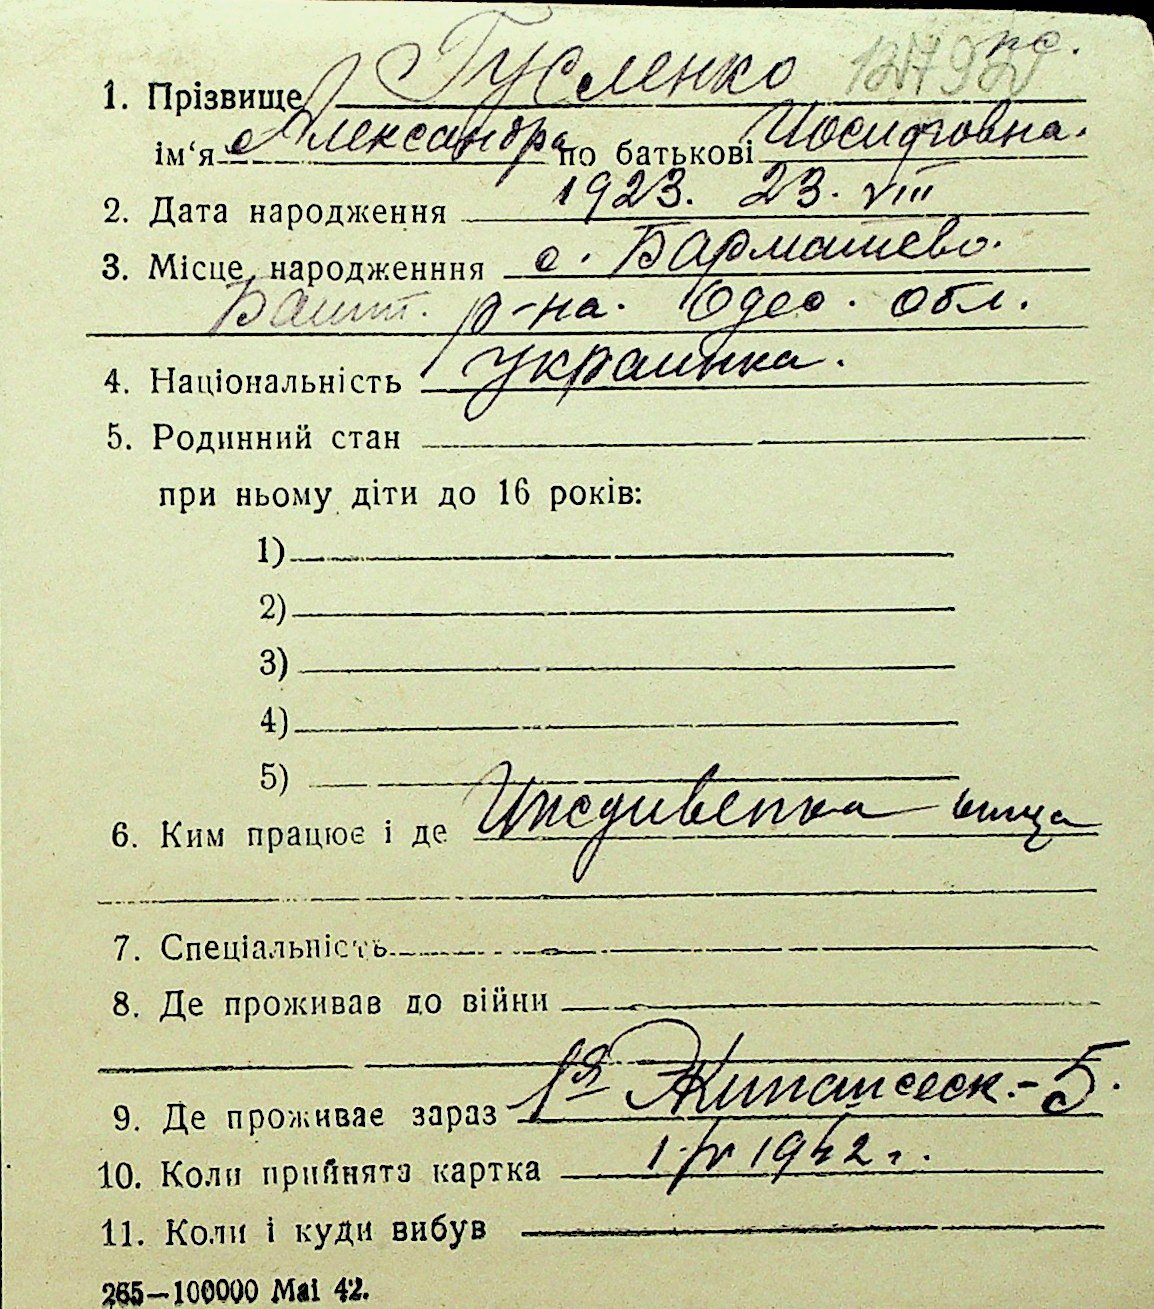 1. Прізвище Гусленко
ім‘я Александра по батькові Иосифовна.
2. Дата народження 1923. 23. VIII
3. Місце народженння с. Бармашево.
Башт. р-на. Одес. обл.
4. Національність украинка.
5. Родинний стан
при ньому діти до 16 років:
1)
2)
3)
4)
5)
6. Ким працює і де Иждивенка
7. Спеціальність
8. Де проживав до війни
9. Де проживає зараз 1я - 5.
10. Коли прийнята картка 1942 г.
11. Коли і куди вибув
265—100000 Mai 42.